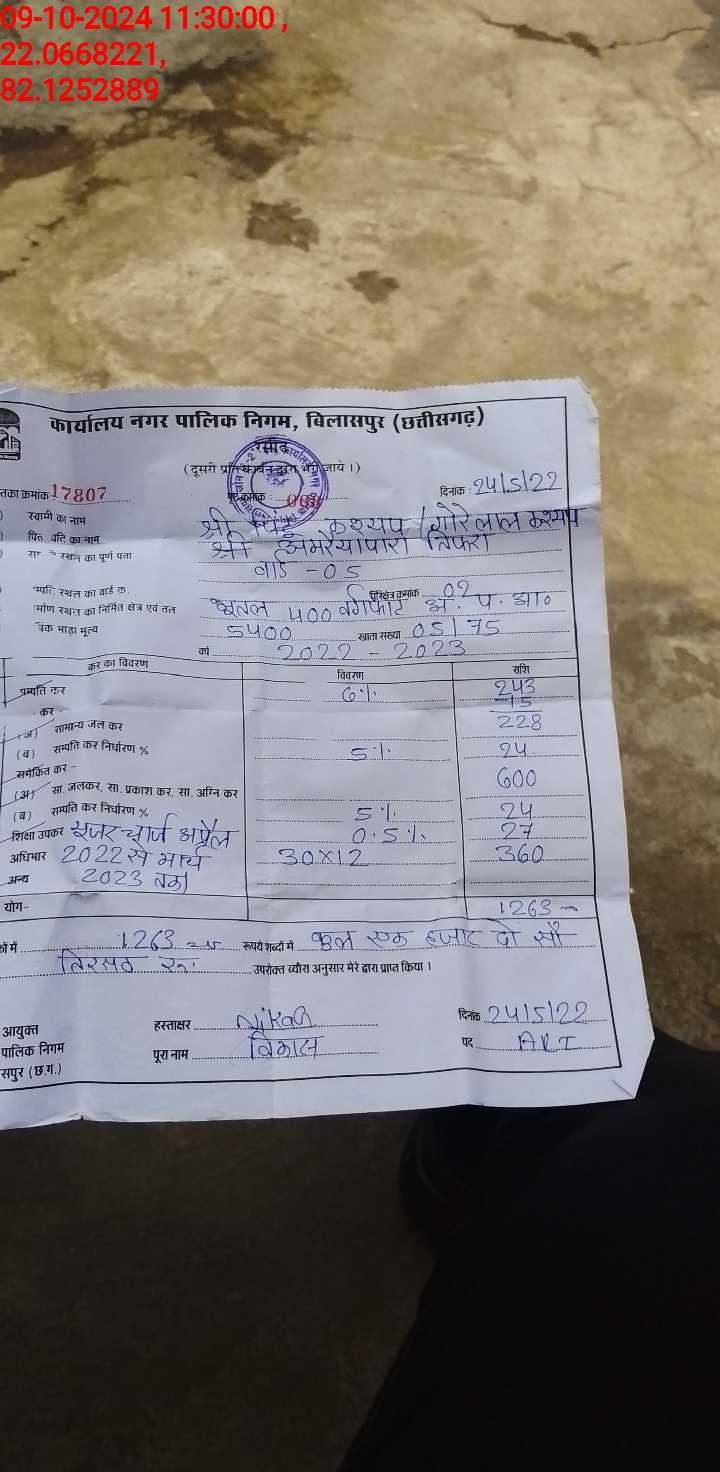 09-10-2024 11:30:00 ,
22.0668221,
82.1252889
कार्यालय नगर पालिक निगम, बिलासपुर (छत्तीसगढ़)
रसीद
(दूसरी प्रति कार्बन द्वारा भरी जाये।)
क्रमांक 17807
दिनांक : 24/5/22
स्वामी का नाम श्री कश्यप / गोरेलाल कश्यप
पति का नाम श्री अमरैयापारा तिफरा
स्थल का पूर्ण पता
वार्ड - 05
स्थल का वार्ड क्र. परिक्षेत्र क्रमांक 02
निर्माण स्थल का निर्मित क्षेत्र एवं तल भूतल 400 वर्गफीट अ. प. आ०
भाड़ा मूल्य 5400 खाता संख्या 05/75
वर्ष 2022 - 2023
कर का विवरण विवरण राशि
सम्पति कर 6% 243
15
कर 228
सामान्य जल कर
(ब) सम्पति कर निर्धारण % 5% 24
समेकित कर - 600
(अ) सा. जलकर, सा. प्रकाश कर, सा. अग्नि कर
(ब) सम्पति कर निर्धारण % 5% 24
शिक्षा उपकर यूजर चार्ज अप्रैल 0.5% 27
अधिभार 2022 से मार्च 30x12 360
अन्य 2023 तक
योग- 1263
में 1263 रूपये शब्दों में कुल एक हजार दो सौ
तिरसठ रू. उपरोक्त ब्यौरा अनुसार मेरे द्वारा प्राप्त किया ।
आयुक्त हस्ताक्षर दिनांक 24/5/22
पालिक निगम पूरा नाम विकास पद ARI
सपुर (छ.ग.)